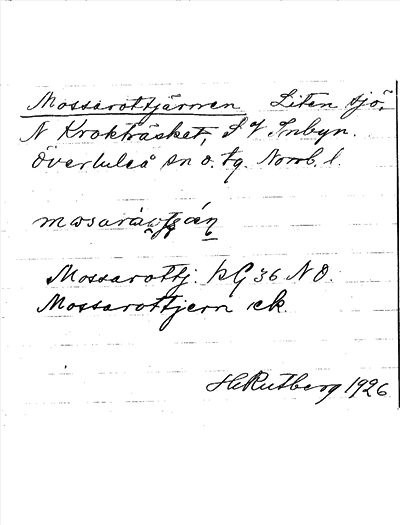 Mossarottjärnen Liten sjö,
N Kroktråsket, S V Inbyn.
Överluleå sn o. tg. Norrb. l.
Mossarottj. kG 36 NO.
Mossarottjern ek.
H Rutberg 1926